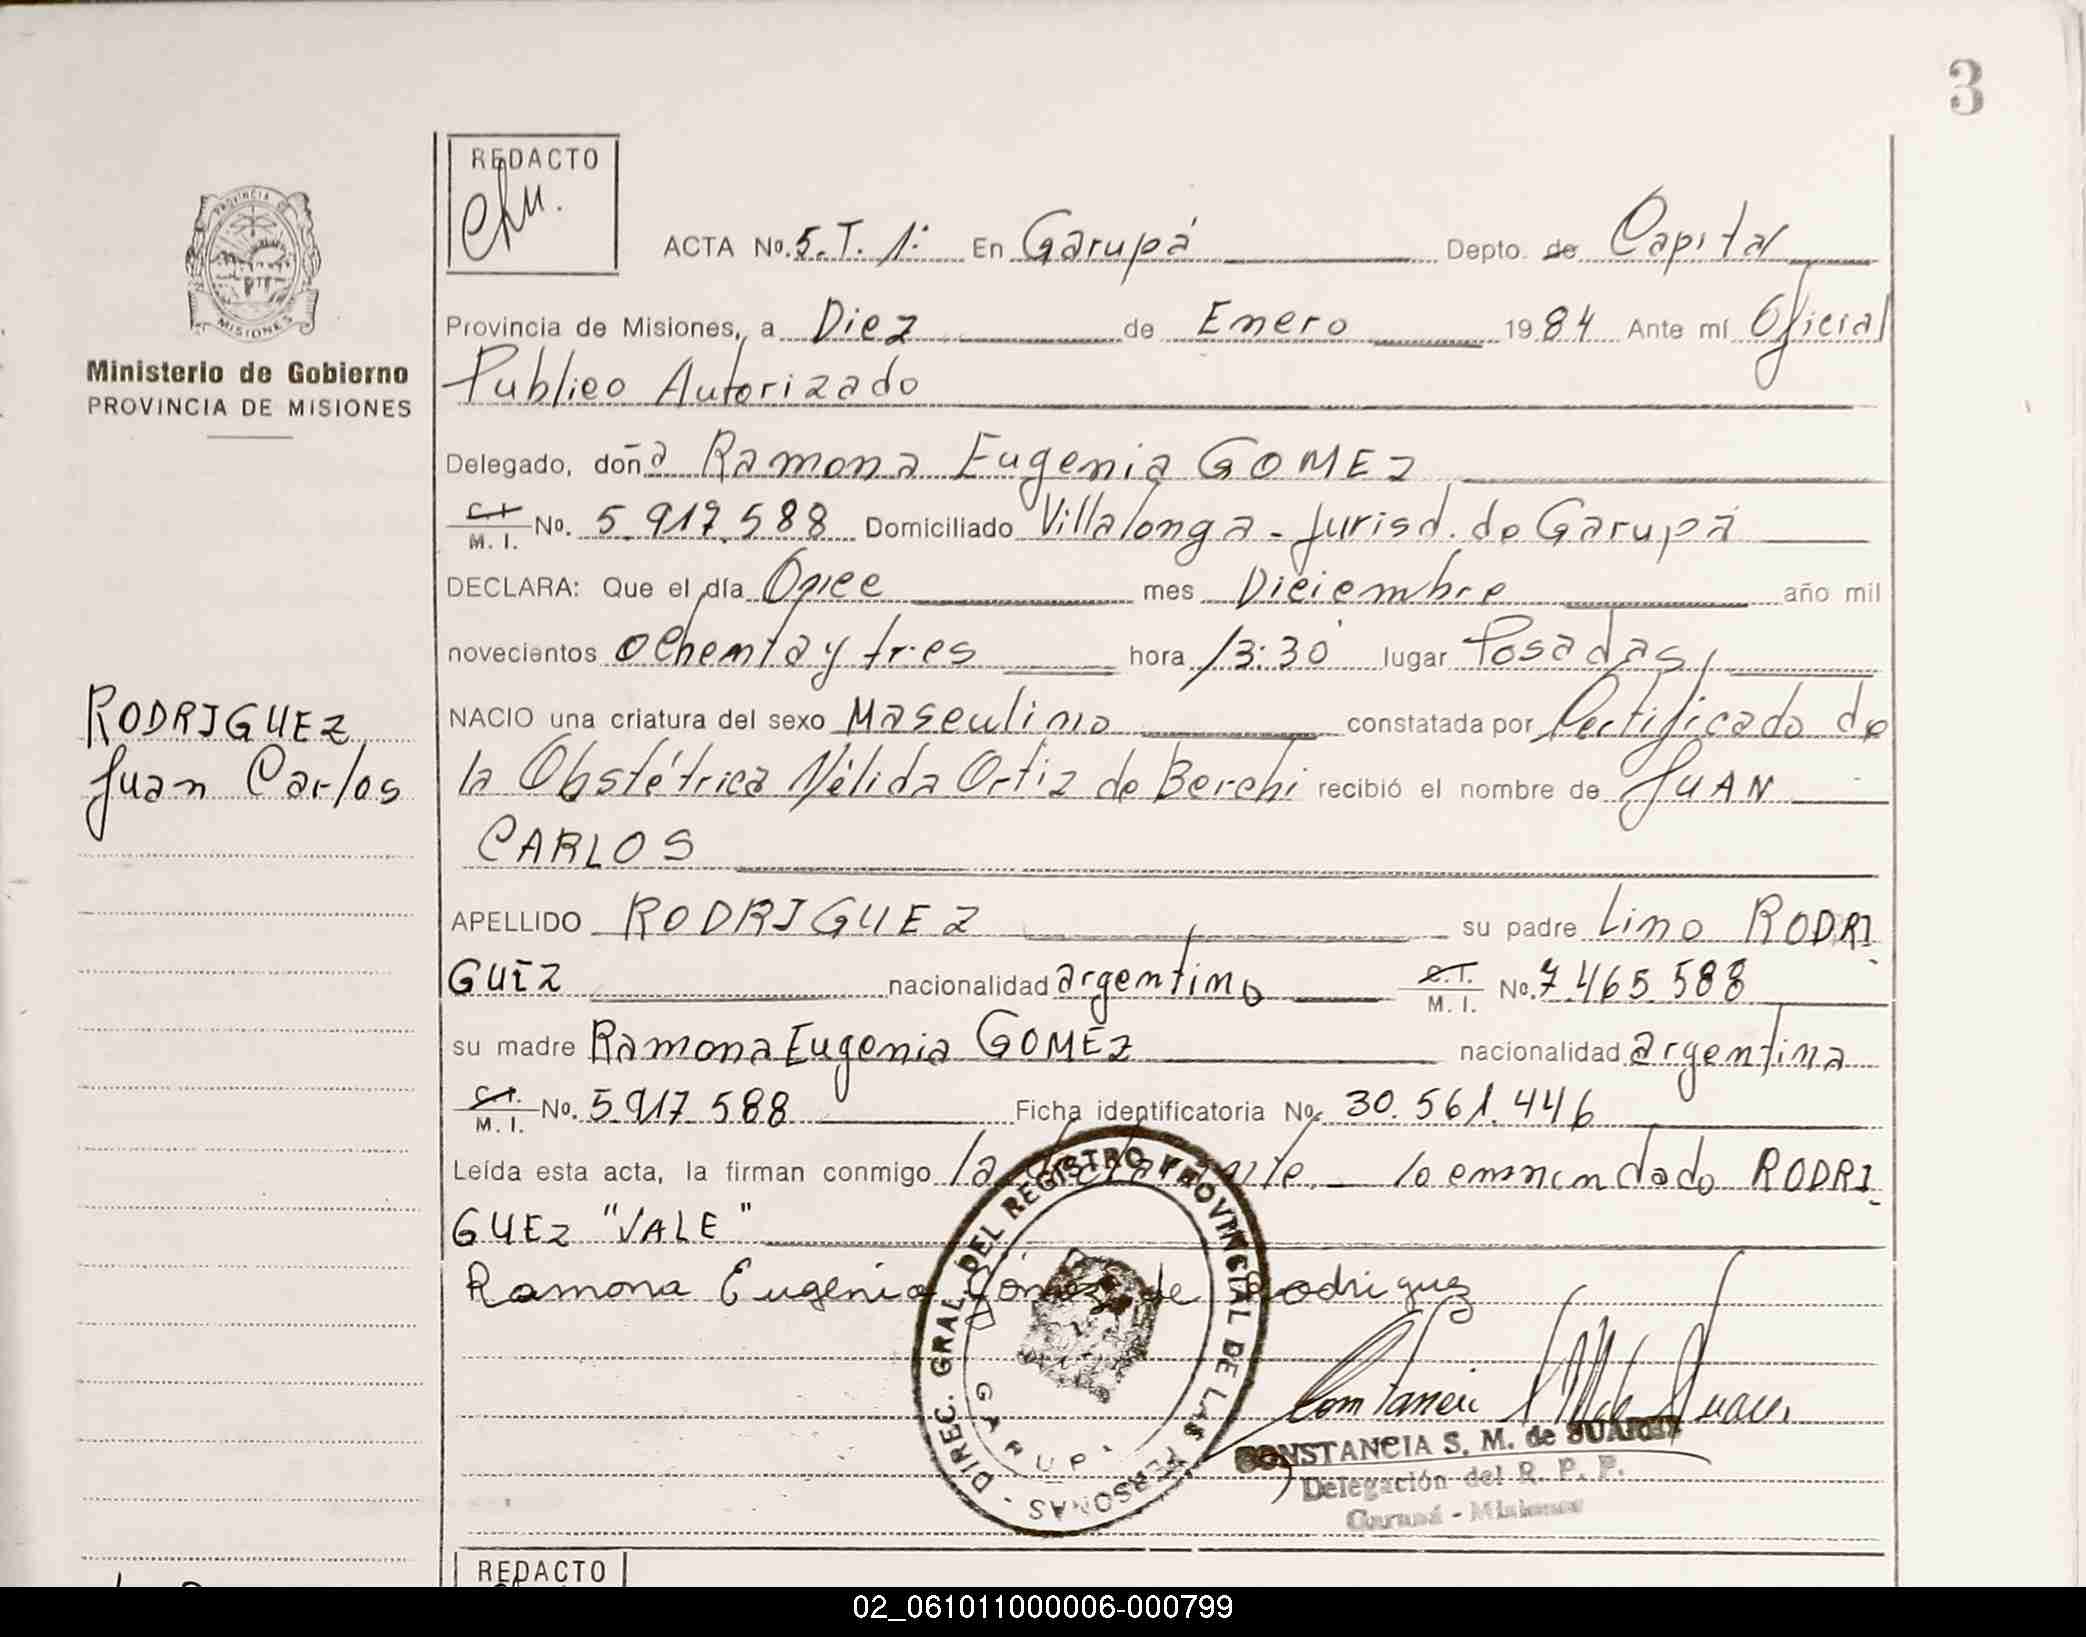 3
REDACTO
PROVINCIA DE
MISIONES
ACTA No. 5. T. 1º En Garupá Depto. de Capital
Provincia de Misiones, a Diez de Enero 1984 Ante mí Oficial
Ministerio de Gobierno
PROVINCIA DE MISIONES
Publico Autorizado
Delegado, doña Ramona Eugenia GOMEZ
C.I. M. I. No. 5.917.588 Domiciliado Villalonga - Jurisd. de Garupá
DECLARA: Que el día Once mes Diciembre año mil
novecientos ochenta y tres hora 13:30 lugar Posadas,
RODRIGUEZ
Juan Carlos
NACIO una criatura del sexo Masculino constatada por Certificado de
la Obstétrica Nélida Ortiz de Berchi recibió el nombre de JUAN
CARLOS
APELLIDO RODRIGUEZ su padre Lino RODRI
GUEZ nacionalidad argentino C.I. M. I. No. 7.465.588
su madre Ramona Eugenia GOMEZ nacionalidad argentina
C.I. M. I. No. 5.917.588 Ficha identificatoria No. 30.561.446
Leída esta acta, la firman conmigo la declarante. lo enmendado RODRI
GUEZ "VALE"
Ramona Eugenia Gómez de Rodriguez
DIREC. GRAL. DEL REGISTRO PROVINCIAL DE LAS PERSONAS -
GARUPA
CONSTANCIA S. M. de SUAREZ
Delegación del R. P. P.
Garupá - Misiones
REDACTO
02_061011000006-000799